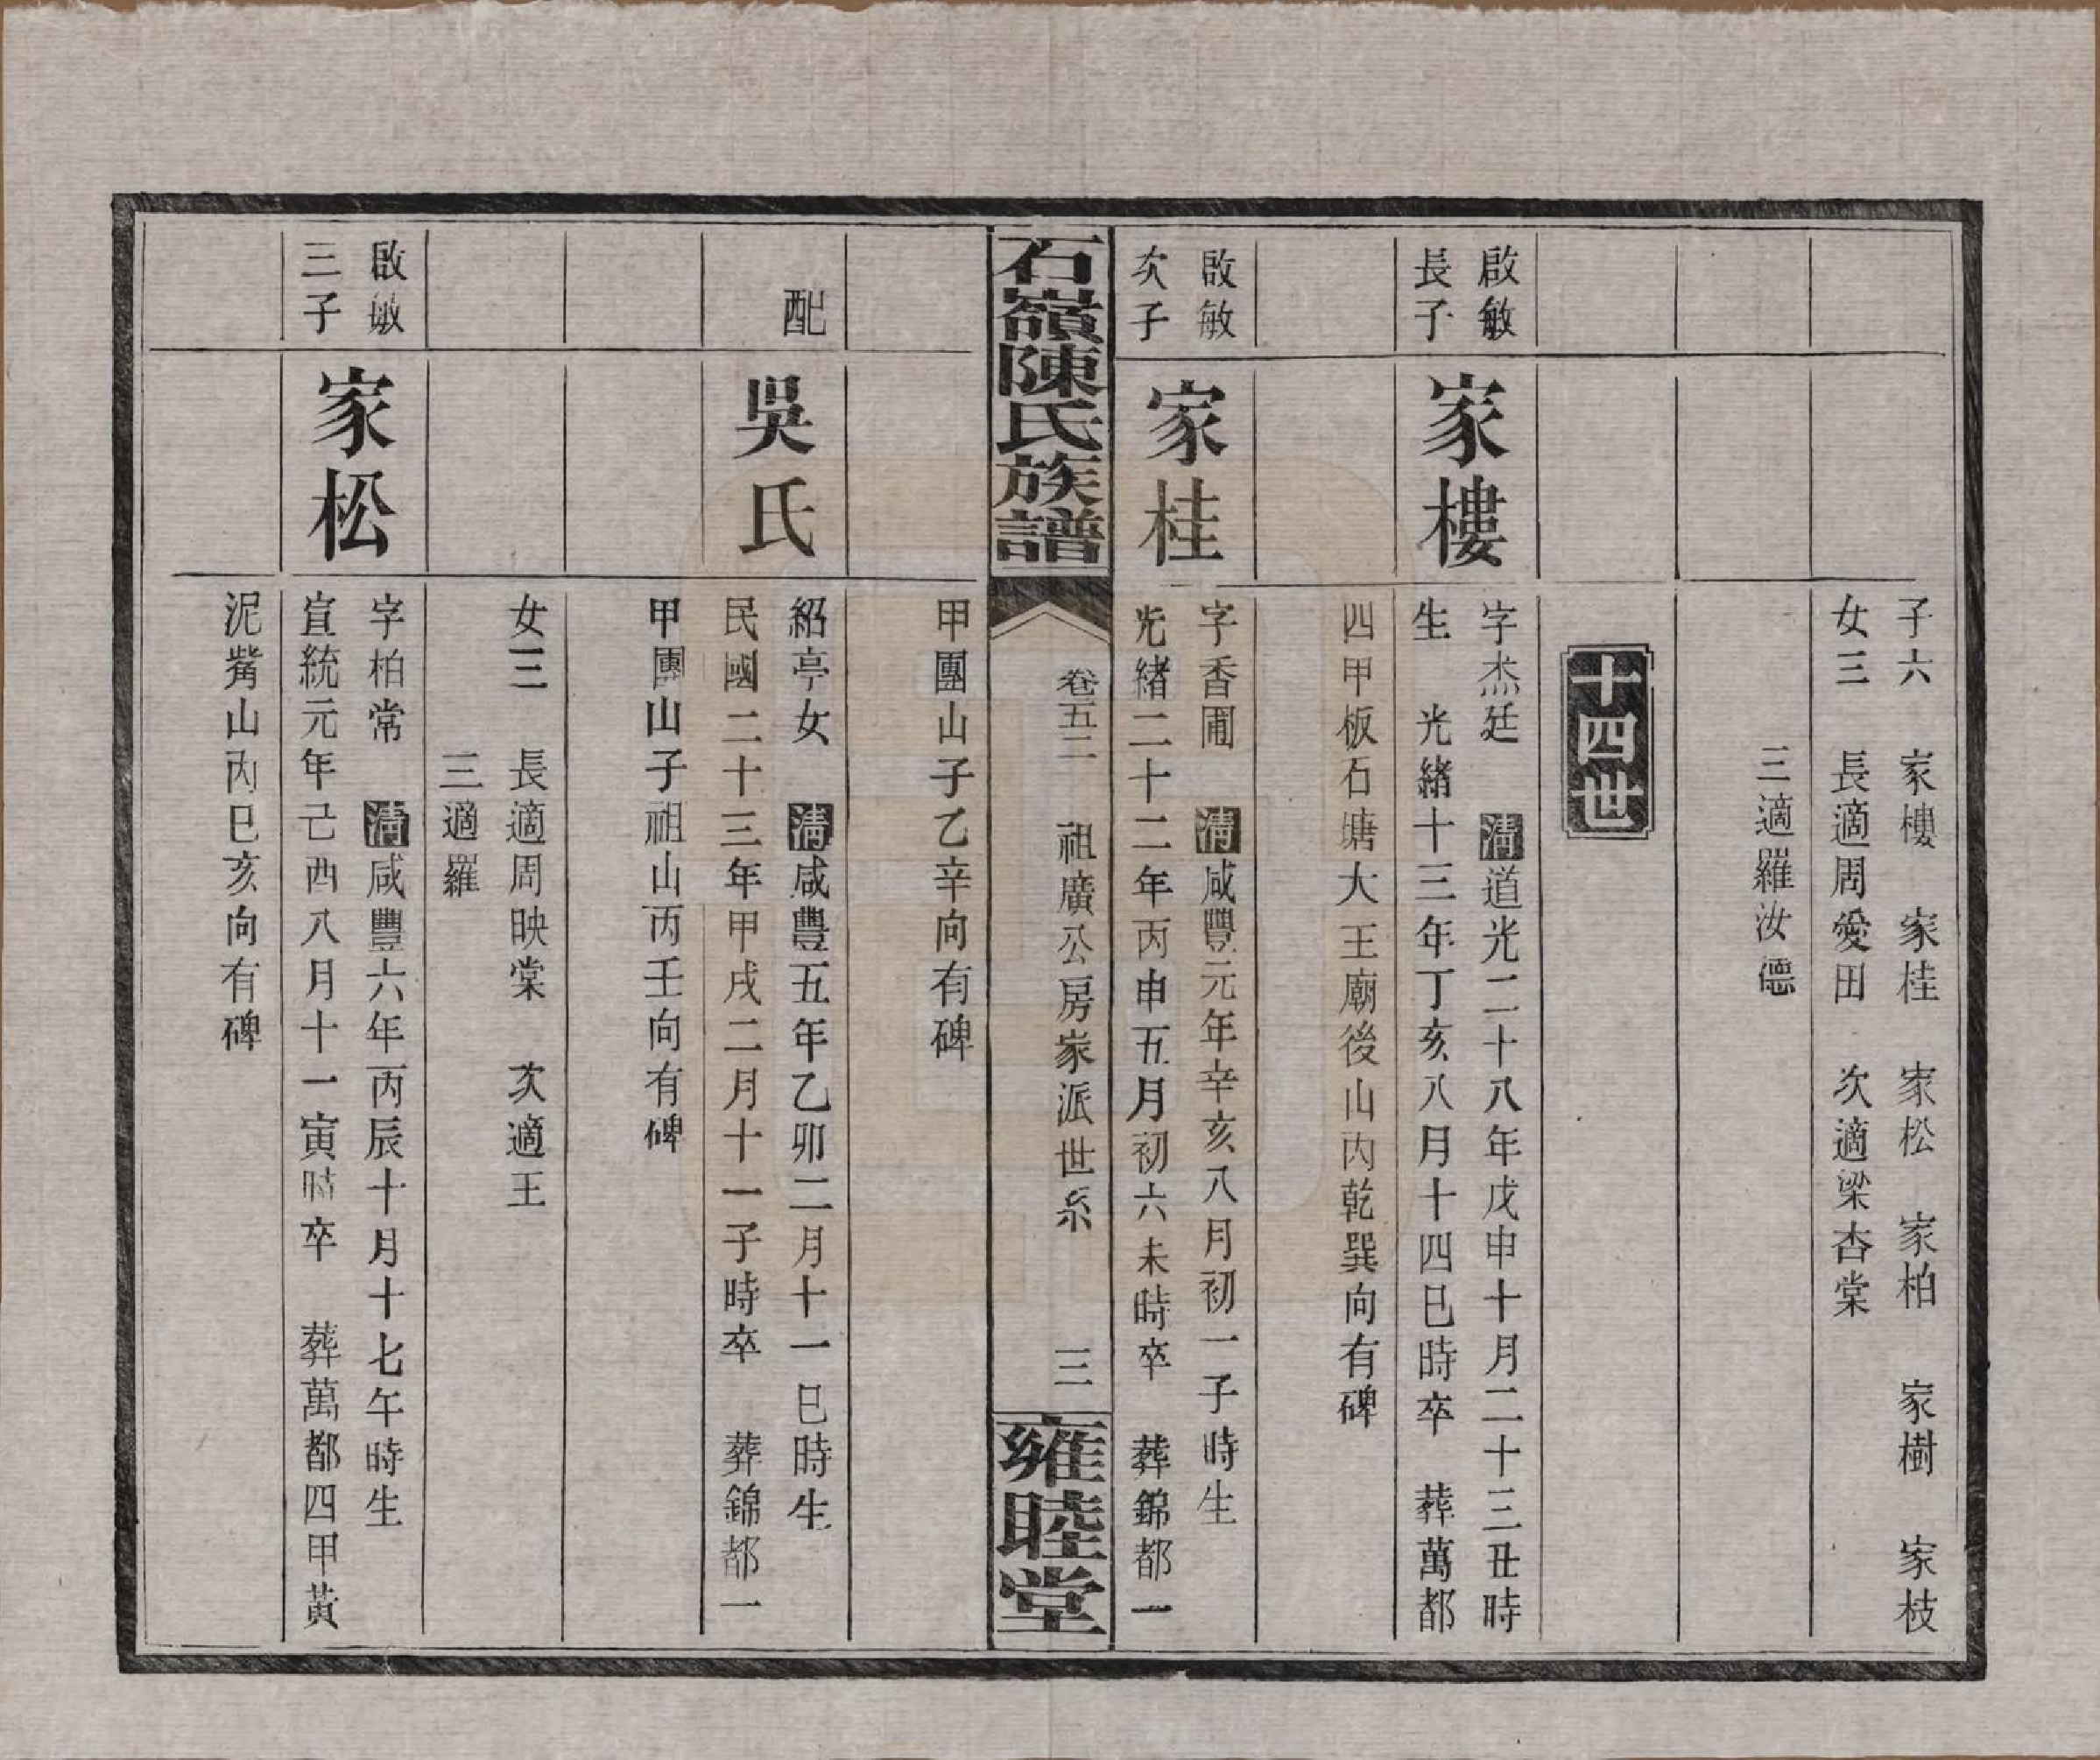 子六　家樓　家桂　家松　家柏　家樹　家枝
女三　長適周愛田　次適梁杏棠
三適羅汝德
十四世
啟敏
長子
家樓
字杰廷　清道光二十八年戊申十月二十三丑時
生　光緒十三年丁亥八月十四巳時卒　葬萬都
四甲板石塘大王廟後山內乾巽向有碑
啟敏
次子
家桂
字香圃　清咸豐元年辛亥八月初一子時生
光緒二十二年丙申五月初六未時卒　葬錦都一
石嶺陳氏族譜
卷五二　祖廣公房家派世系　三
雍睦堂
甲團山子乙辛向有碑
配
吳氏
紹亭女　清咸豐五年乙卯二月十一巳時生
民國二十三年甲戌二月十一子時卒　葬錦都一
甲團山子祖山丙壬向有碑
女三　長適周映棠　次適王
三適羅
啟敏
三子
家松
字柏常　清咸豐六年丙辰十月十七午時生
宣統元年己酉八月十一寅時卒　葬萬都四甲黃
泥觜山內巳亥向有碑